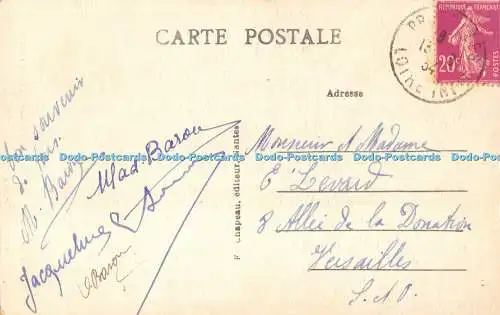 CARTE POSTALE
Adresse
REPUBLIQUE FRANÇAISE
20c
POSTES
LOIRE INF
Bon souvenir
de
M. Baron
Mad. Baron
Jacqueline
Baron
F. Chapeau, éditeur, Nantes
Monsieur & Madame
E. Levard
8 Allée de la Donation
Versailles
S. & O.
Dodo-Postcards Dodo-Postcards Dodo-Postcards Dodo-Postcards Dodo-Postcards